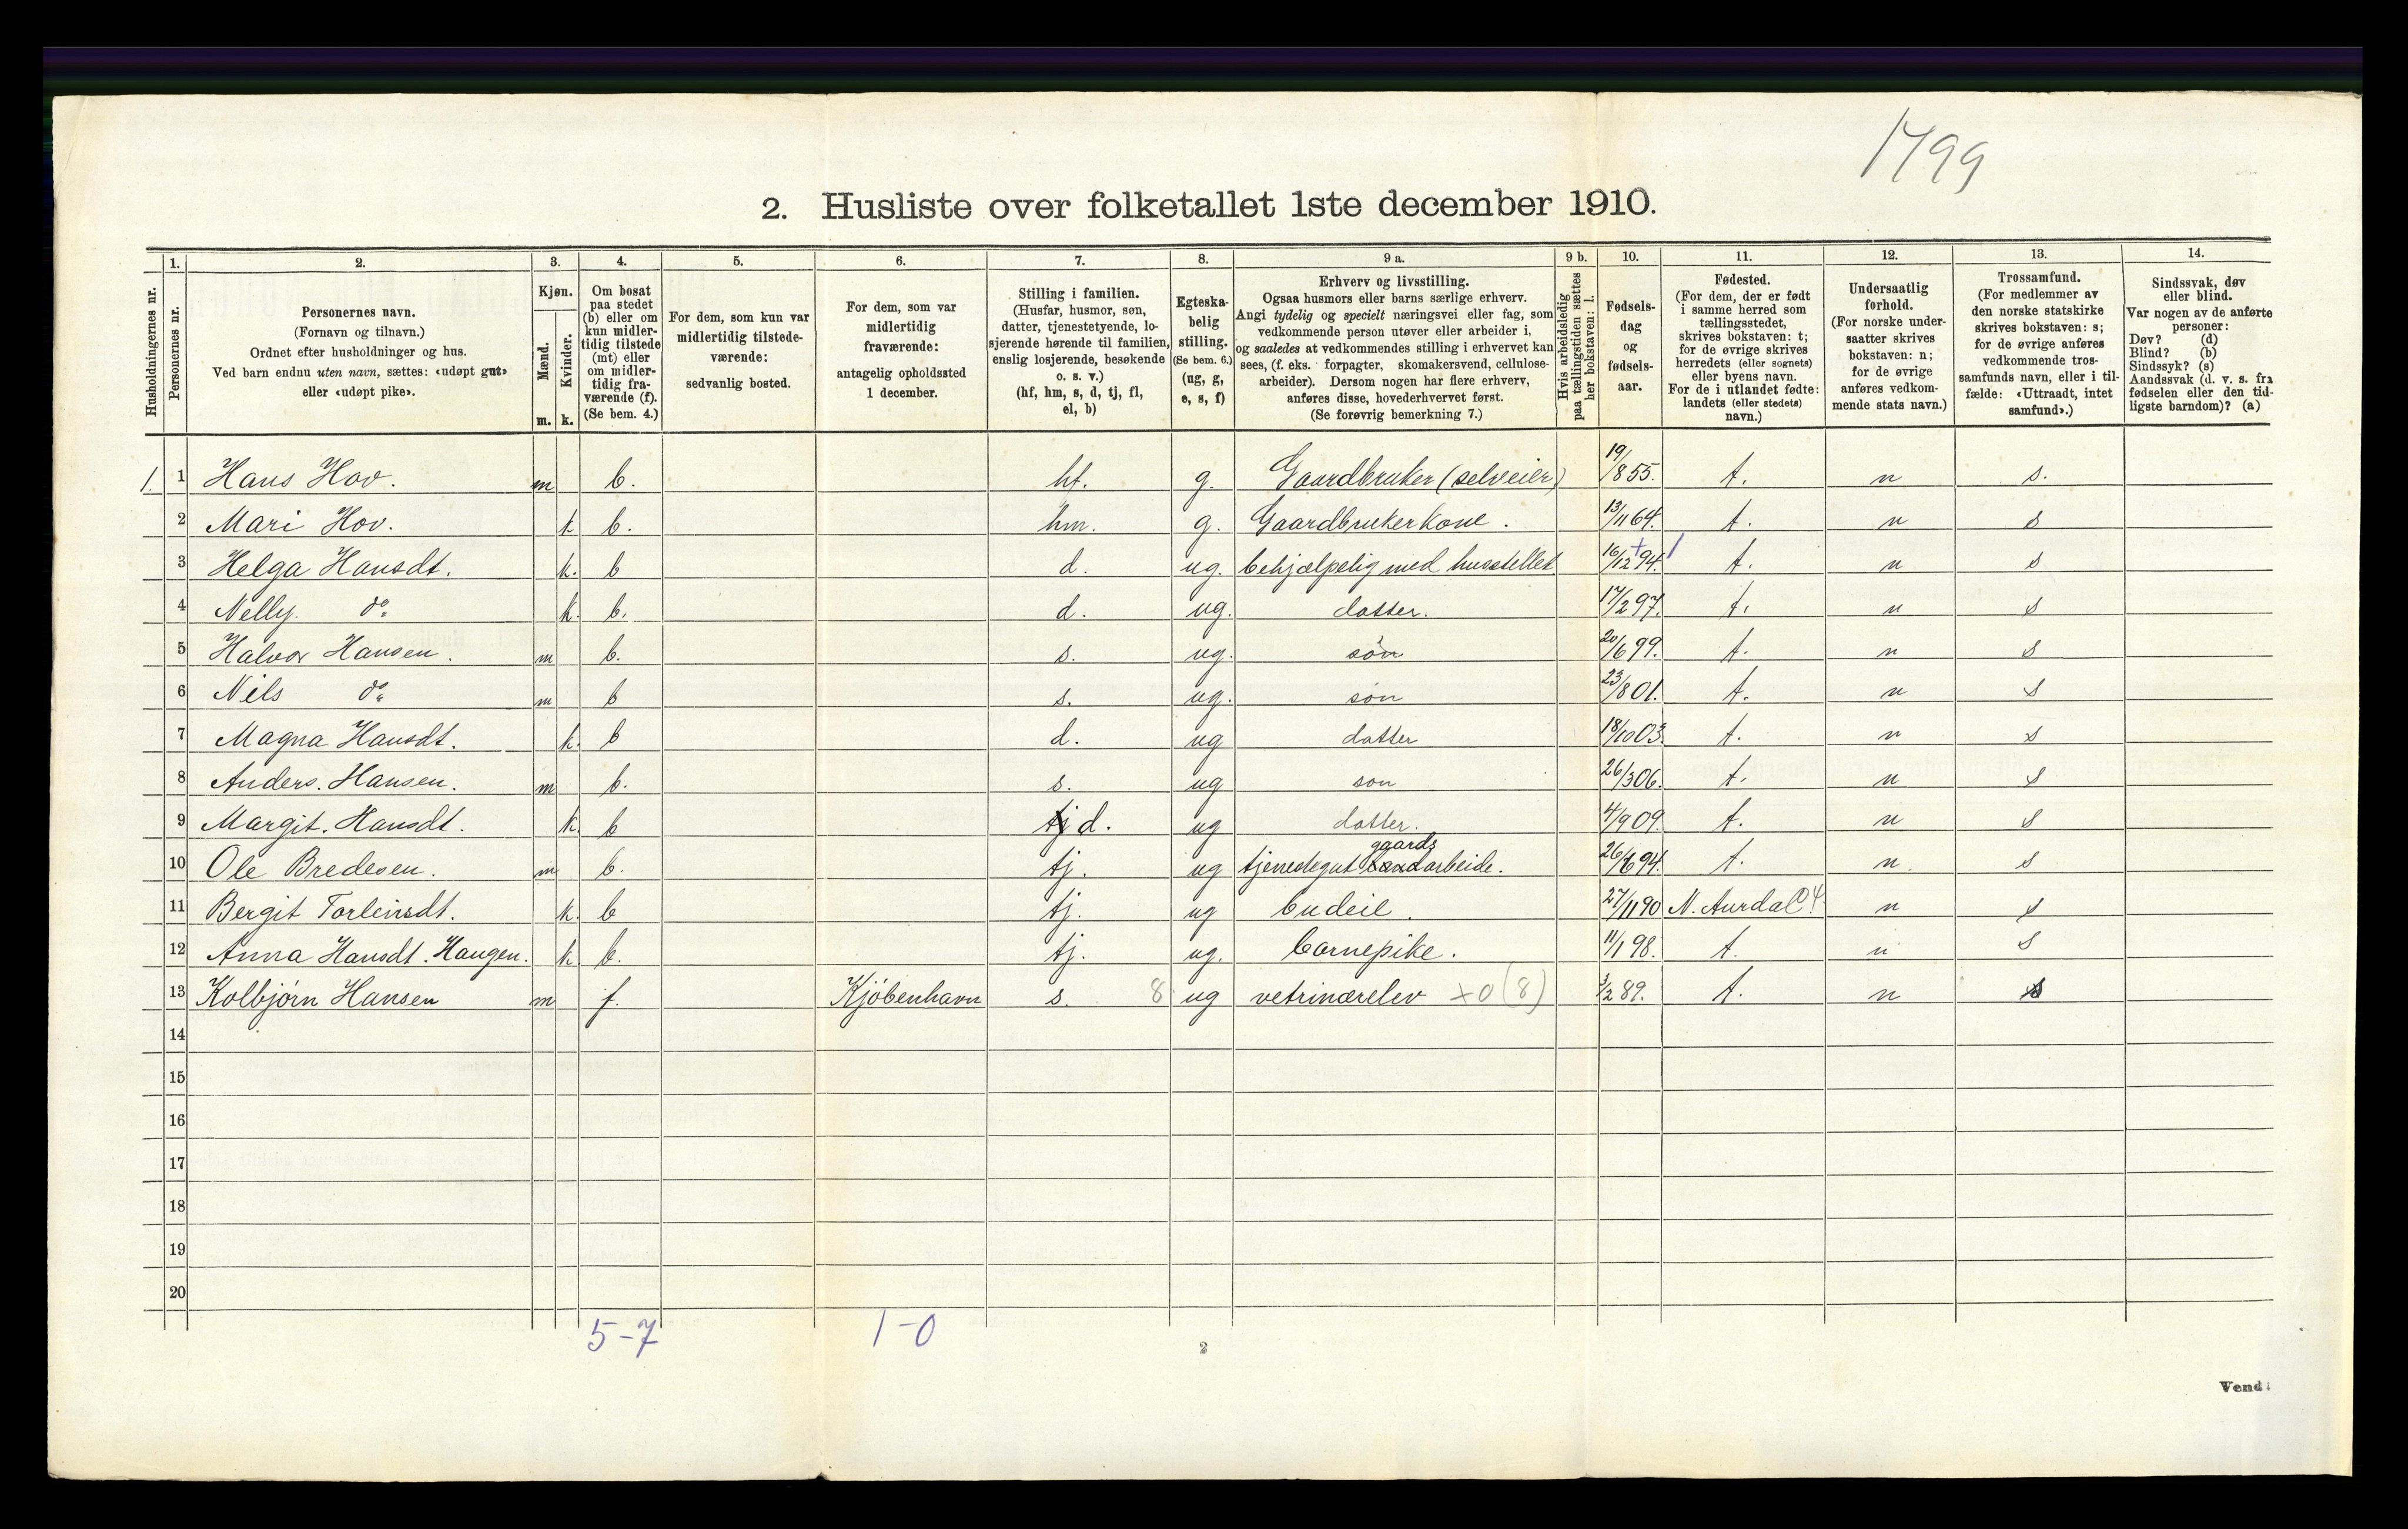 1499
2. Husliste over folketallet 1ste december 1910.
Husholdningernes nr.
1.
Personernes nr.
2.
Personernes navn.
(Fornavn og tilnavn.)
Ordnet efter husholdninger og hus.
Ved barn endnu uten navn, sættes: «udøpt gut»
eller «udøpt pike».
3.
Kjøn.
Mænd.
Kvinder.
m. k.
4.
Om bosat
paa stedet
(b) eller om
kun midler-
tidig tilstede
(mt) eller
om midler-
tidig fra-
værende (f).
(Se bem. 4.)
5.
For dem, som kun var
midlertidig tilstede-
værende:
sedvanlig bosted.
6.
For dem, som var
midlertidig
fraværende:
antagelig opholdssted
1 december.
7.
Stilling i familien.
(Husfar, husmor, søn,
datter, tjenestetyende, lo-
sjerende hørende til familien,
enslig losjerende, besøkende
o. s. v.)
(hf, hm, s, d, tj, fl,
el, b)
8.
Egteska-
belig
stilling.
(Se bem. 6.)
(ug, g,
e, s, f)
9 a.
Erhverv og livsstilling.
Ogsaa husmors eller barns særlige erhverv.
Angi tydelig og specielt næringsvei eller fag, som
vedkommende person utøver eller arbeider i,
og saaledes at vedkommendes stilling i erhvervet kan
sees, (f. eks. forpagter, skomakersvend, cellulose-
arbeider). Dersom nogen har flere erhverv,
anføres disse, hovederhvervet først.
(Se forøvrig bemerkning 7.)
9 b.
Hvis arbeidsledig
paa tællingstiden sættes
her bokstaven: l.
10.
Fødsels-
dag
og
fødsels-
aar.
11.
Fødested.
(For dem, der er født
i samme herred som
tællingsstedet,
skrives bokstaven: t;
for de øvrige skrives
herredets (eller sognets)
eller byens navn.
For de i utlandet fødte:
landets (eller stedets)
navn.)
12.
Undersaatlig
forhold.
(For norske under-
saatter skrives
bokstaven: n;
for de øvrige
anføres vedkom-
mende stats navn.)
13.
Trossamfund.
(For medlemmer av
den norske statskirke
skrives bokstaven: s;
for de øvrige anføres
vedkommende tros-
samfunds navn, eller i til-
fælde: «Uttraadt, intet
samfund».)
14.
Sindssvak, døv
eller blind.
Var nogen av de anførte
personer:
Døv? (d)
Blind? (b)
Sindssyk? (s)
Aandssvak (d. v. s. fra
fødselen eller den tid-
ligste barndom)? (a)
1. 1 Hans Hov. m b. hf. g. Gaardbruker (selveier) 19/8 55. t. n s.
2 Mari Hov. k b. hm. g. Gaardbrukerkone. 13/11 64. t. n s
3 Helga Hansdt. k. b d. ug. behjælpelig med husstellet 16/12 94. t. n s
4 Nelly do k. b. d. ug. datter. 17/2 97. t. n s
5 Halvor Hansen. m b. s. ug. søn 20/6 99. t. n s
6 Nils do m b s. ug. søn 23/8 01. t. n s
7 Magna Hansdt. k. b d. ug datter 18/10 03. t. n s
8 Anders. Hansen. m b. s. ug søn 26/3 06. t. n s
9 Margit. Hansdt. k. b tj d. ug datter. 4/9 09. t. n s
10 Ole Bredesen. m b. tj. ug tjenestegut gaardsarbeide. 26/6 94. t. n. s
11 Bergit Torleinsdt. k. b tj. ug budeie. 27/11 90 N. Aurdal 04 n s
12 Anna Hansdt. Haugen. k b. tj. ug. barnepike. 11/1 98. t. n s
13 Kolbjørn Hansen m f. Kjöbenhavn s. 8 ug vetrinærelev +0 (8) 3/2 89. t. n s
14
15
16
17
18
19
20
5-7 1-0
2
Vend!